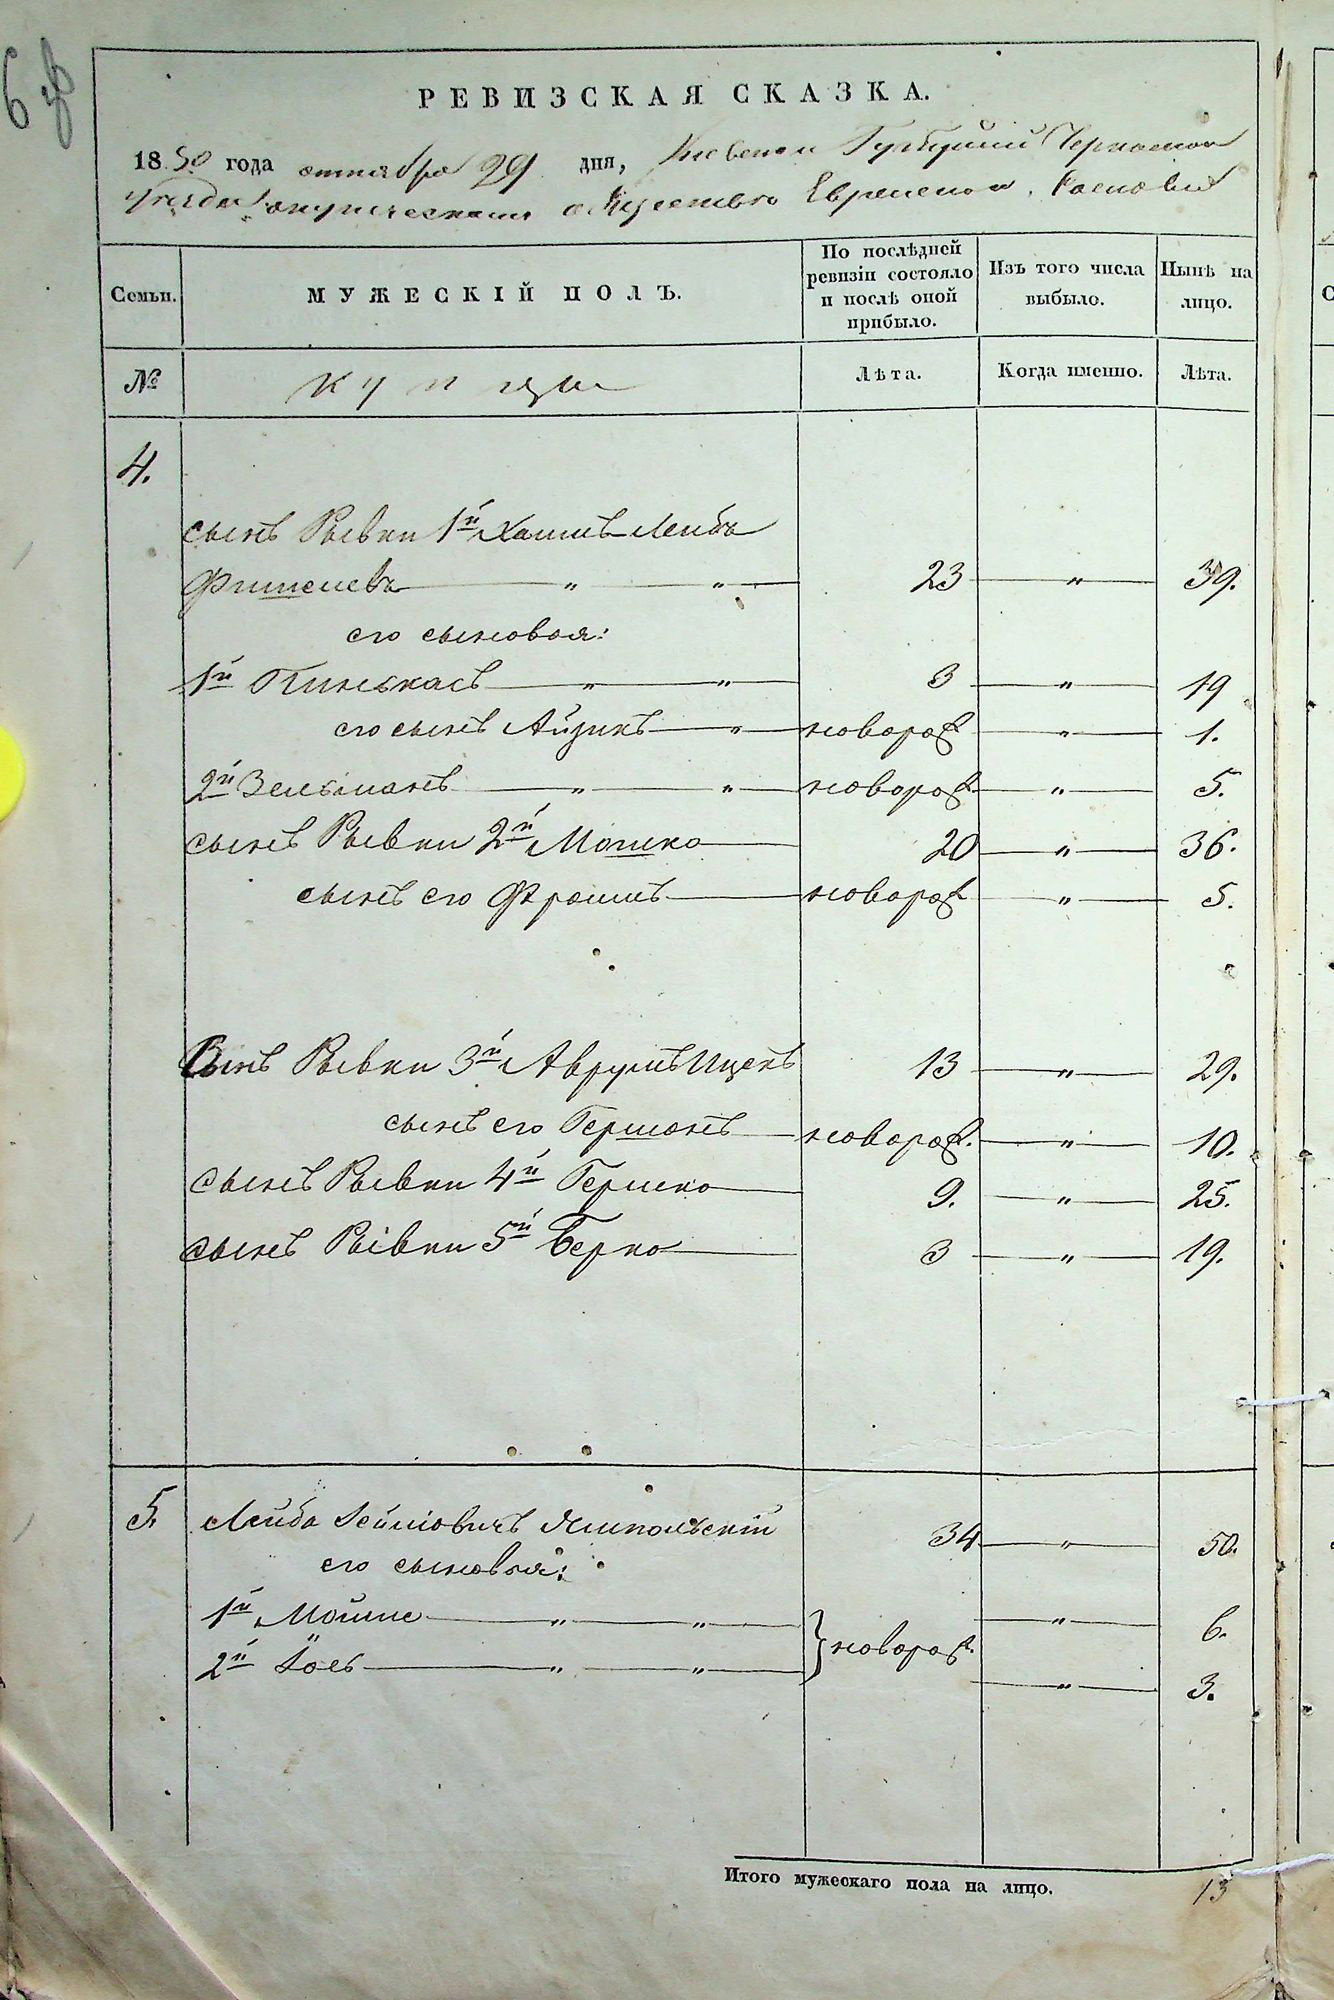 6 об
РЕВИЗСКАЯ СКАЗКА.
1850 года октября 29 дня, Киевской Губерніи Черкаскаго
Уезда купическаго общества Евреевъ
Семьи. МУЖЕСКІЙ ПОЛЪ. По послѣдней ревизіи состояло и послѣ оной прибыло. Изъ того числа выбыло. Нынѣ на лицо.
№ купцы Лѣта. Когда именно. Лѣта.
4.
сынъ Рывки 1й Хаимъ Лейба
Фишелевъ " " 23 " 39.
его сыновья:
1й Пинькасъ " " 3 " 19
его сынъ Айзикъ " новорож " 1.
2й Зельманъ " " новорож " 5.
сынъ Рывки 2й Мошко 20 " 36.
сынъ его Фроимъ новорож " 5.
Сынъ Рывки 3й Аврумъ Ицекъ 13 " 29.
сынъ его Гершонъ новорож. " 10.
сынъ Рывки 4й Гершко 9. " 25.
сынъ Рывки 5й Берко 3 " 19.
5. Лейба Іейліовичъ Ямпольскій 34 " 50.
его сыновья:
1й Мойше " " } новорож. " 6.
2й Іось " " " 3.
Итого мужескаго пола на лицо. 13